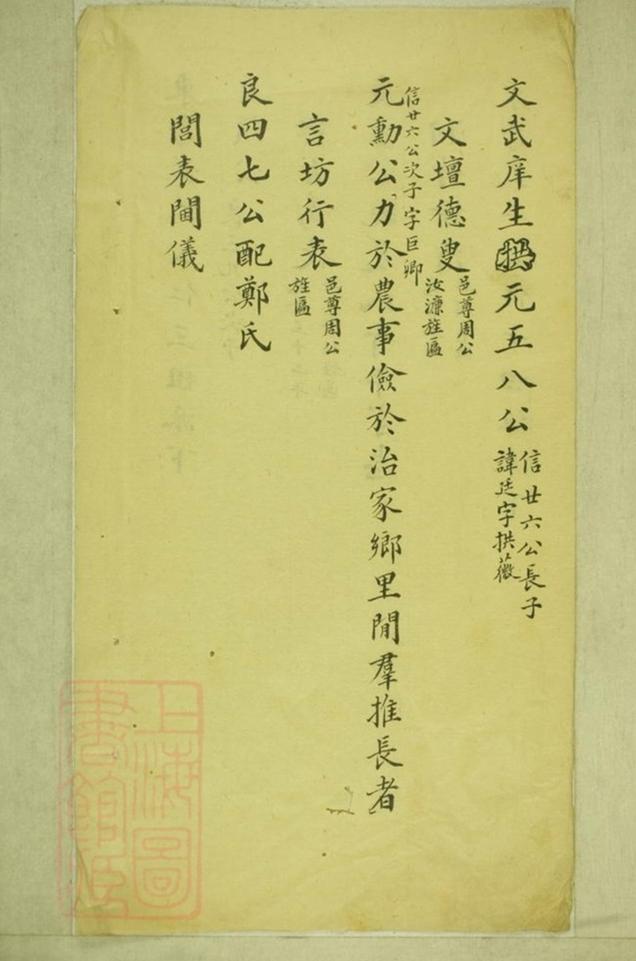 文武庠生元五八公
信廿六公長子
諱廷字拱薇
文壇德叟
邑尊周公
汝濂旌匾
信廿六公次子字巨卿
元勳公力於農事儉於治家鄉里閒羣推長者
言坊行表
邑尊周公
旌匾
良四七公配鄭氏
閭表閫儀
上海圖書館藏